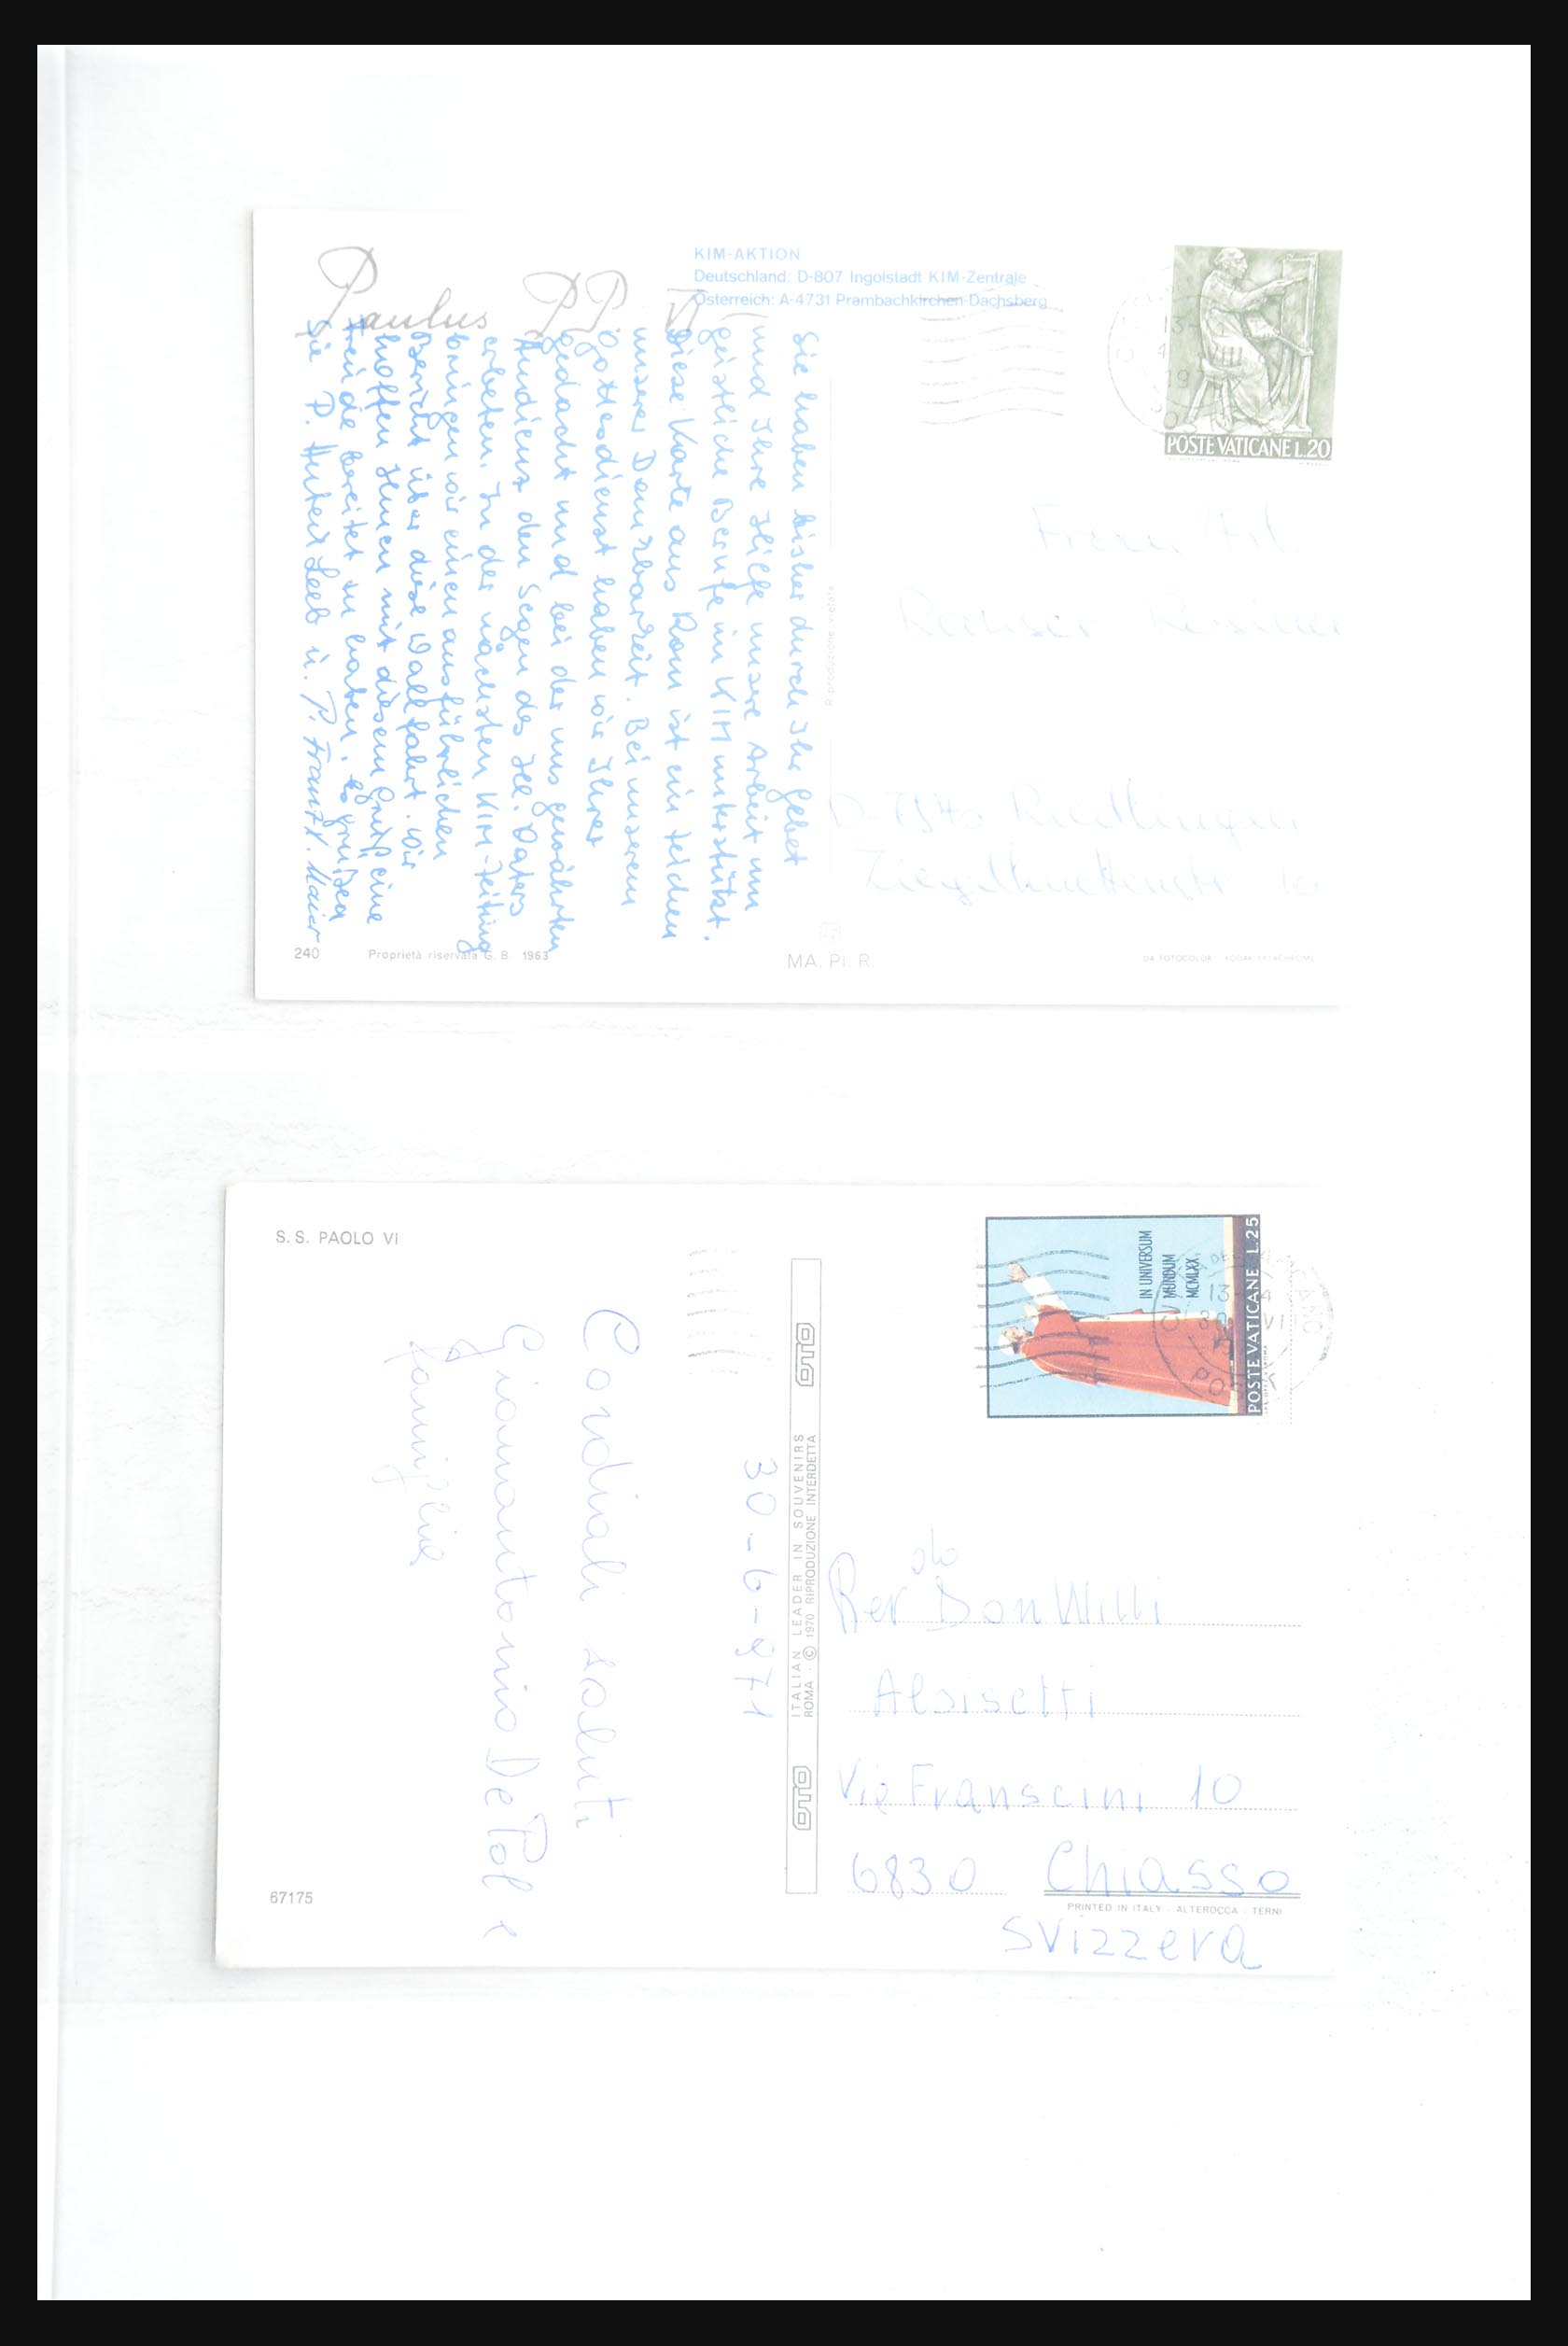 Paulus PP. VI
KIM-AKTION
Deutschland: D-807 Ingolstadt KIM-Zentrale
Österreich: A-4731 Prambachkirchen-Dachsberg
Sie haben bisher durch Ihr Gebet
und Ihre Hilfe unsere Arbeit um
geistliche Berufe im KIM unterstützt.
Diese Karte aus Rom ist ein Zeichen
unserer Dankbarkeit. Bei unserem
Gottesdienst haben wir Ihrer
gedacht und bei der uns gewährten
Audienz den Segen des Hl. Vaters
erbeten. In der nächsten KIM-Zeitung
bringen wir einen ausführlichen
Bericht über diese Wallfahrt. Wir
hoffen Ihnen mit diesem Gruß eine
Freude bereitet zu haben. Es grüßen
Sie P. Hubert Leeb u. P. Franz X. Maier
Riproduzione vietata
POSTE VATICANE L.20
Frau/Frl.
D-7940 Riedlingen
10
240
Proprietà riservata G. B. 1963
MA. PI. R.
DA FOTOCOLOR KODAK EKTACHROME
S. S. PAOLO VI
Cordiali saluti
Giannantonio De Pol e
famiglia
30-6-971
OTO
ITALIAN LEADER IN SOUVENIRS
ROMA - © 1970 RIPRODUZIONE INTERDETTA
OTO
IN UNIVERSUM
MUNDUM
MCMLXX
POSTE VATICANE L.25
13-14
30 VI
Rev do Don Willi
Aloisetti
Via Franscini 10
6830 Chiasso
PRINTED IN ITALY - ALTEROCCA - TERNI
SVizzera
67175